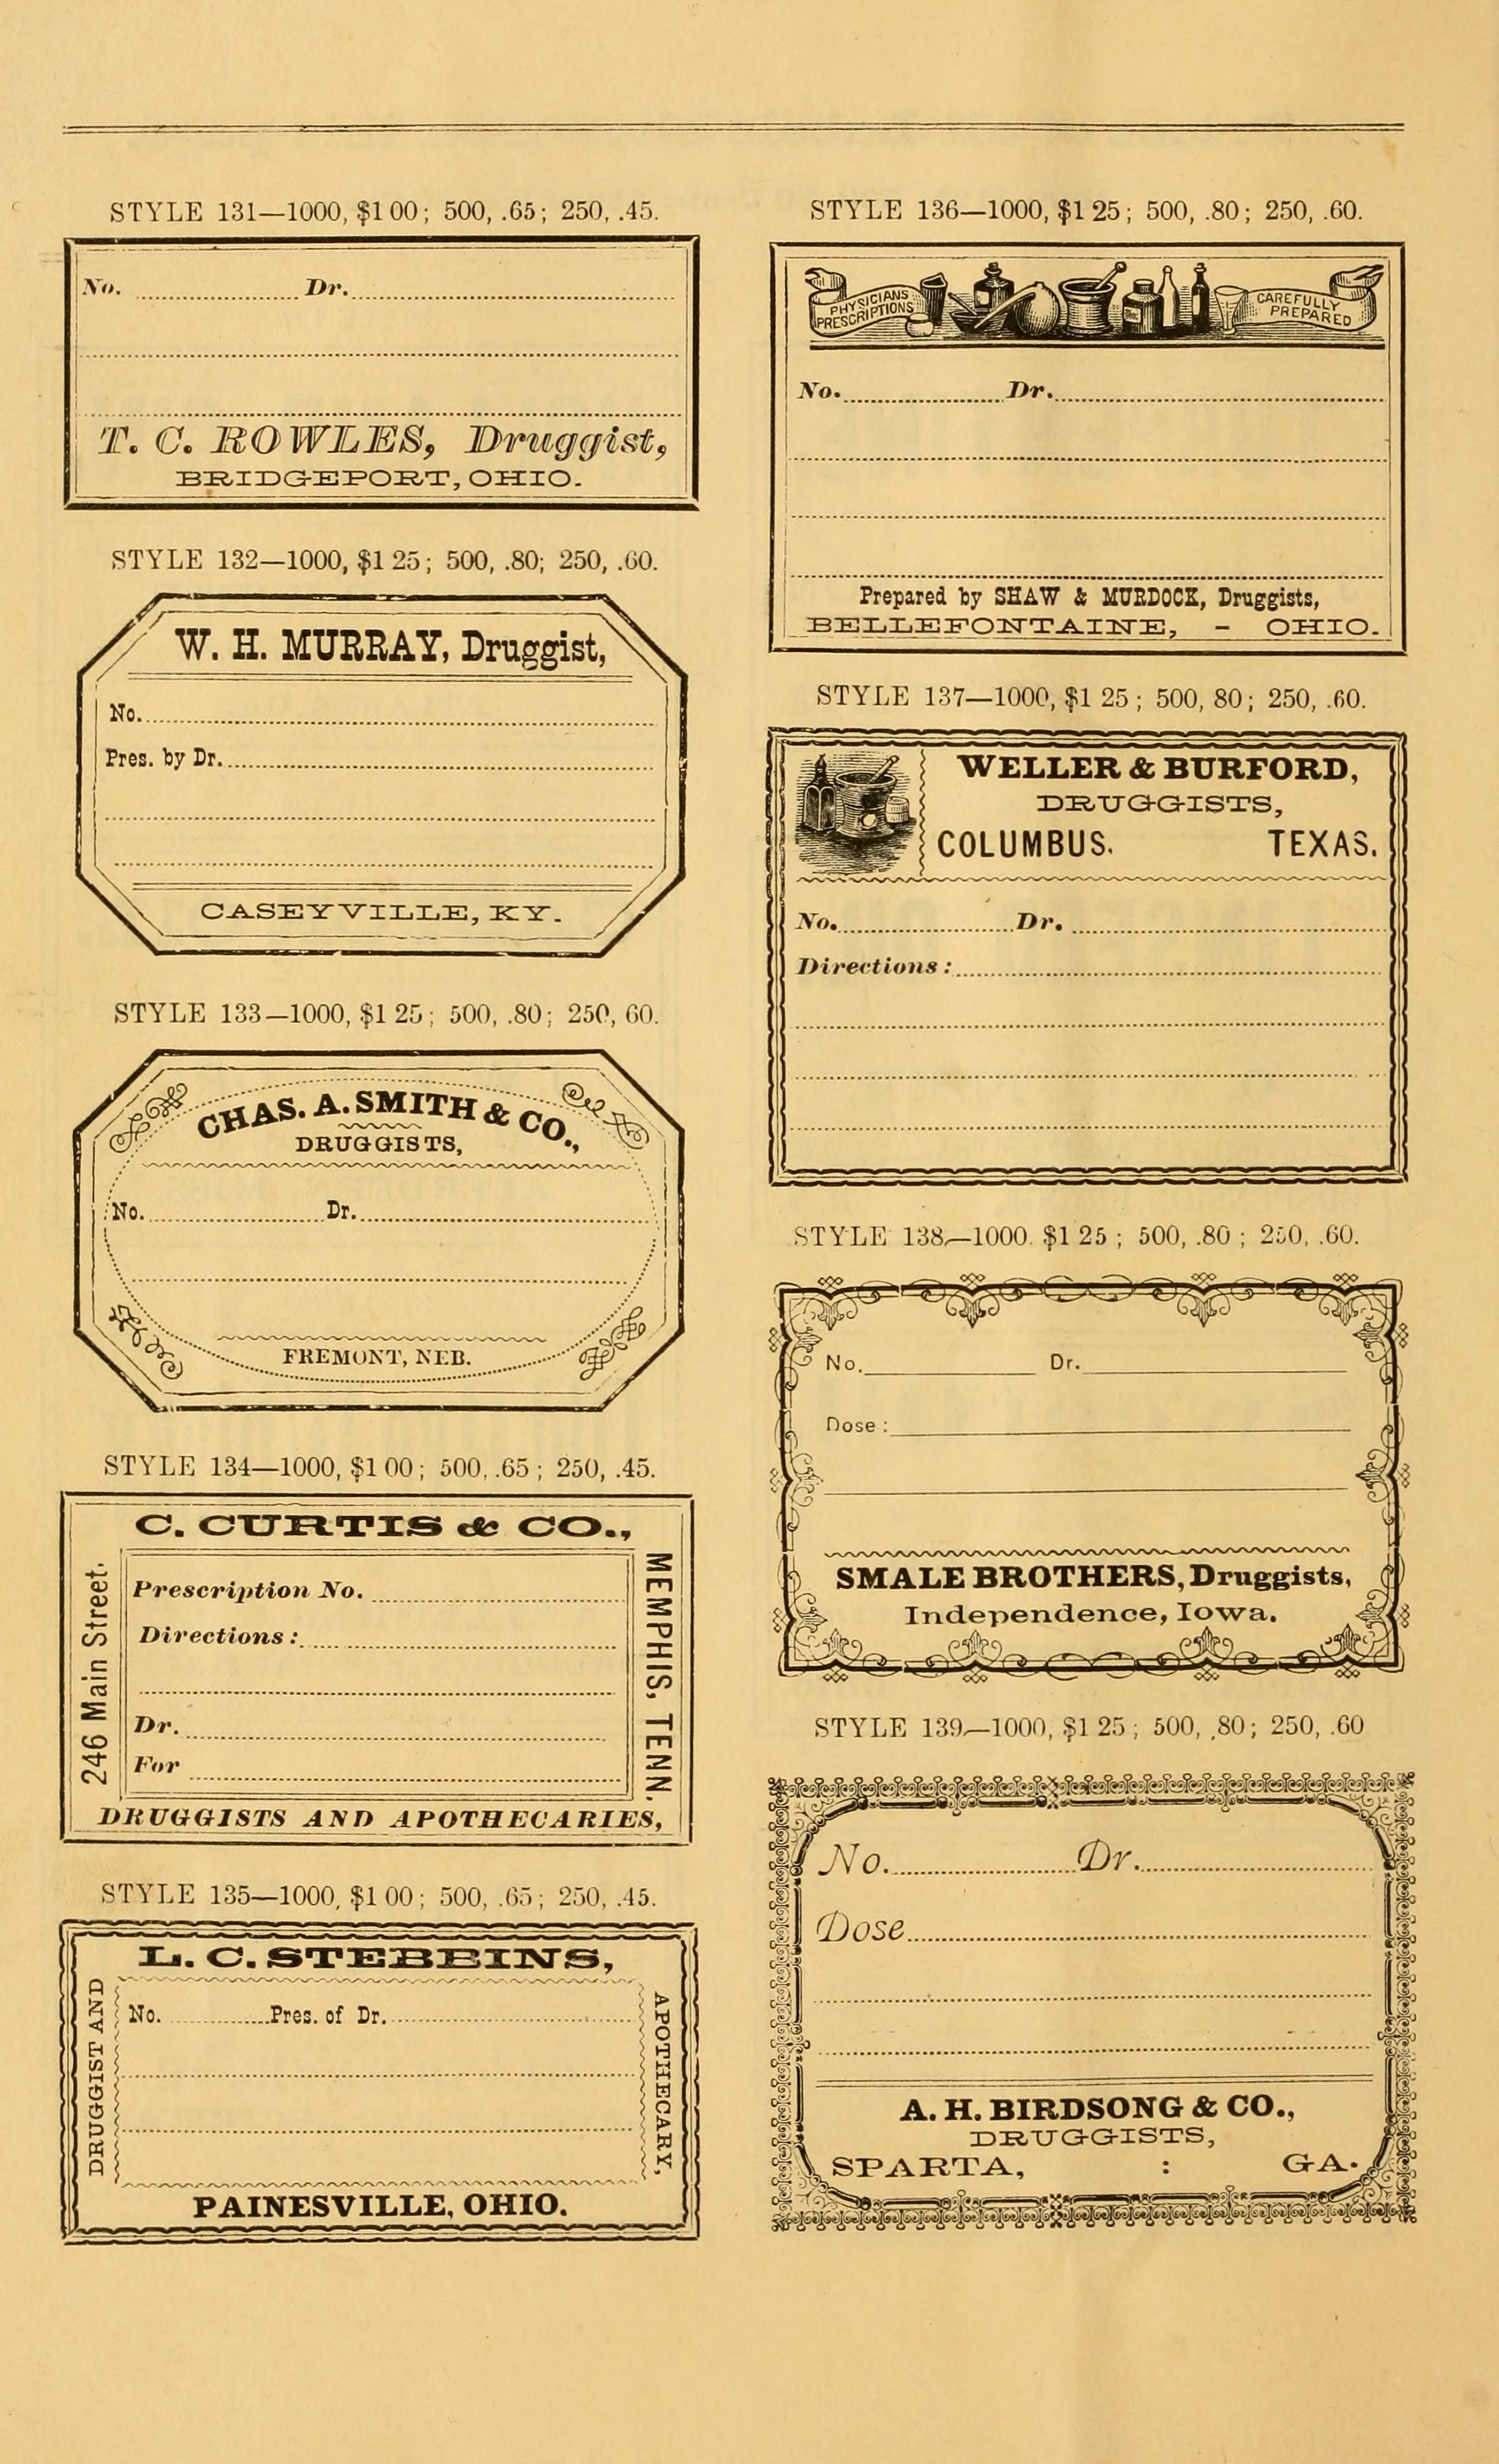 STYLE 131—1000, $1 00; 500, .65; 250, .45.
No. Dr.
T. C. ROWLES, Druggist,
BRIDGEPORT, OHIO.
STYLE 132—1000, $1 25; 500, .80; 250, .60.
W. H. MURRAY, Druggist,
No.
Pres. by Dr.
CASEYVILLE, KY.
STYLE 133—1000, $1 25; 500, .80; 250, 60.
CHAS. A. SMITH & CO.,
DRUGGISTS,
No. Dr.
FREMONT, NEB.
STYLE 134—1000, $1 00; 500, .65; 250, .45.
C. CURTIS & CO.,
246 Main Street.
Prescription No.
Directions:
Dr.
For
MEMPHIS, TENN.
DRUGGISTS AND APOTHECARIES,
STYLE 135—1000, $1 00; 500, .65; 250, .45.
L. C. STEBBINS,
DRUGGIST AND
No. Pres. of Dr.
APOTHECARY,
PAINESVILLE, OHIO.
STYLE 136—1000, $1 25; 500, .80; 250, .60.
PHYSICIANS
PRESCRIPTIONS
CAREFULLY
PREPARED
No. Dr.
Prepared by SHAW & MURDOCK, Druggists,
BELLEFONTAINE, - OHIO.
STYLE 137—1000, $1 25; 500, 80; 250, .60.
WELLER & BURFORD,
DRUGGISTS,
COLUMBUS. TEXAS.
No. Dr.
Directions:
STYLE 138—1000. $1 25; 500, .80; 250, .60.
No. Dr.
Dose:
SMALE BROTHERS, Druggists,
Independence, Iowa.
STYLE 139—1000, $1 25; 500, .80; 250, .60
No. Dr.
Dose
A. H. BIRDSONG & CO.,
DRUGGISTS,
SPARTA, : GA.